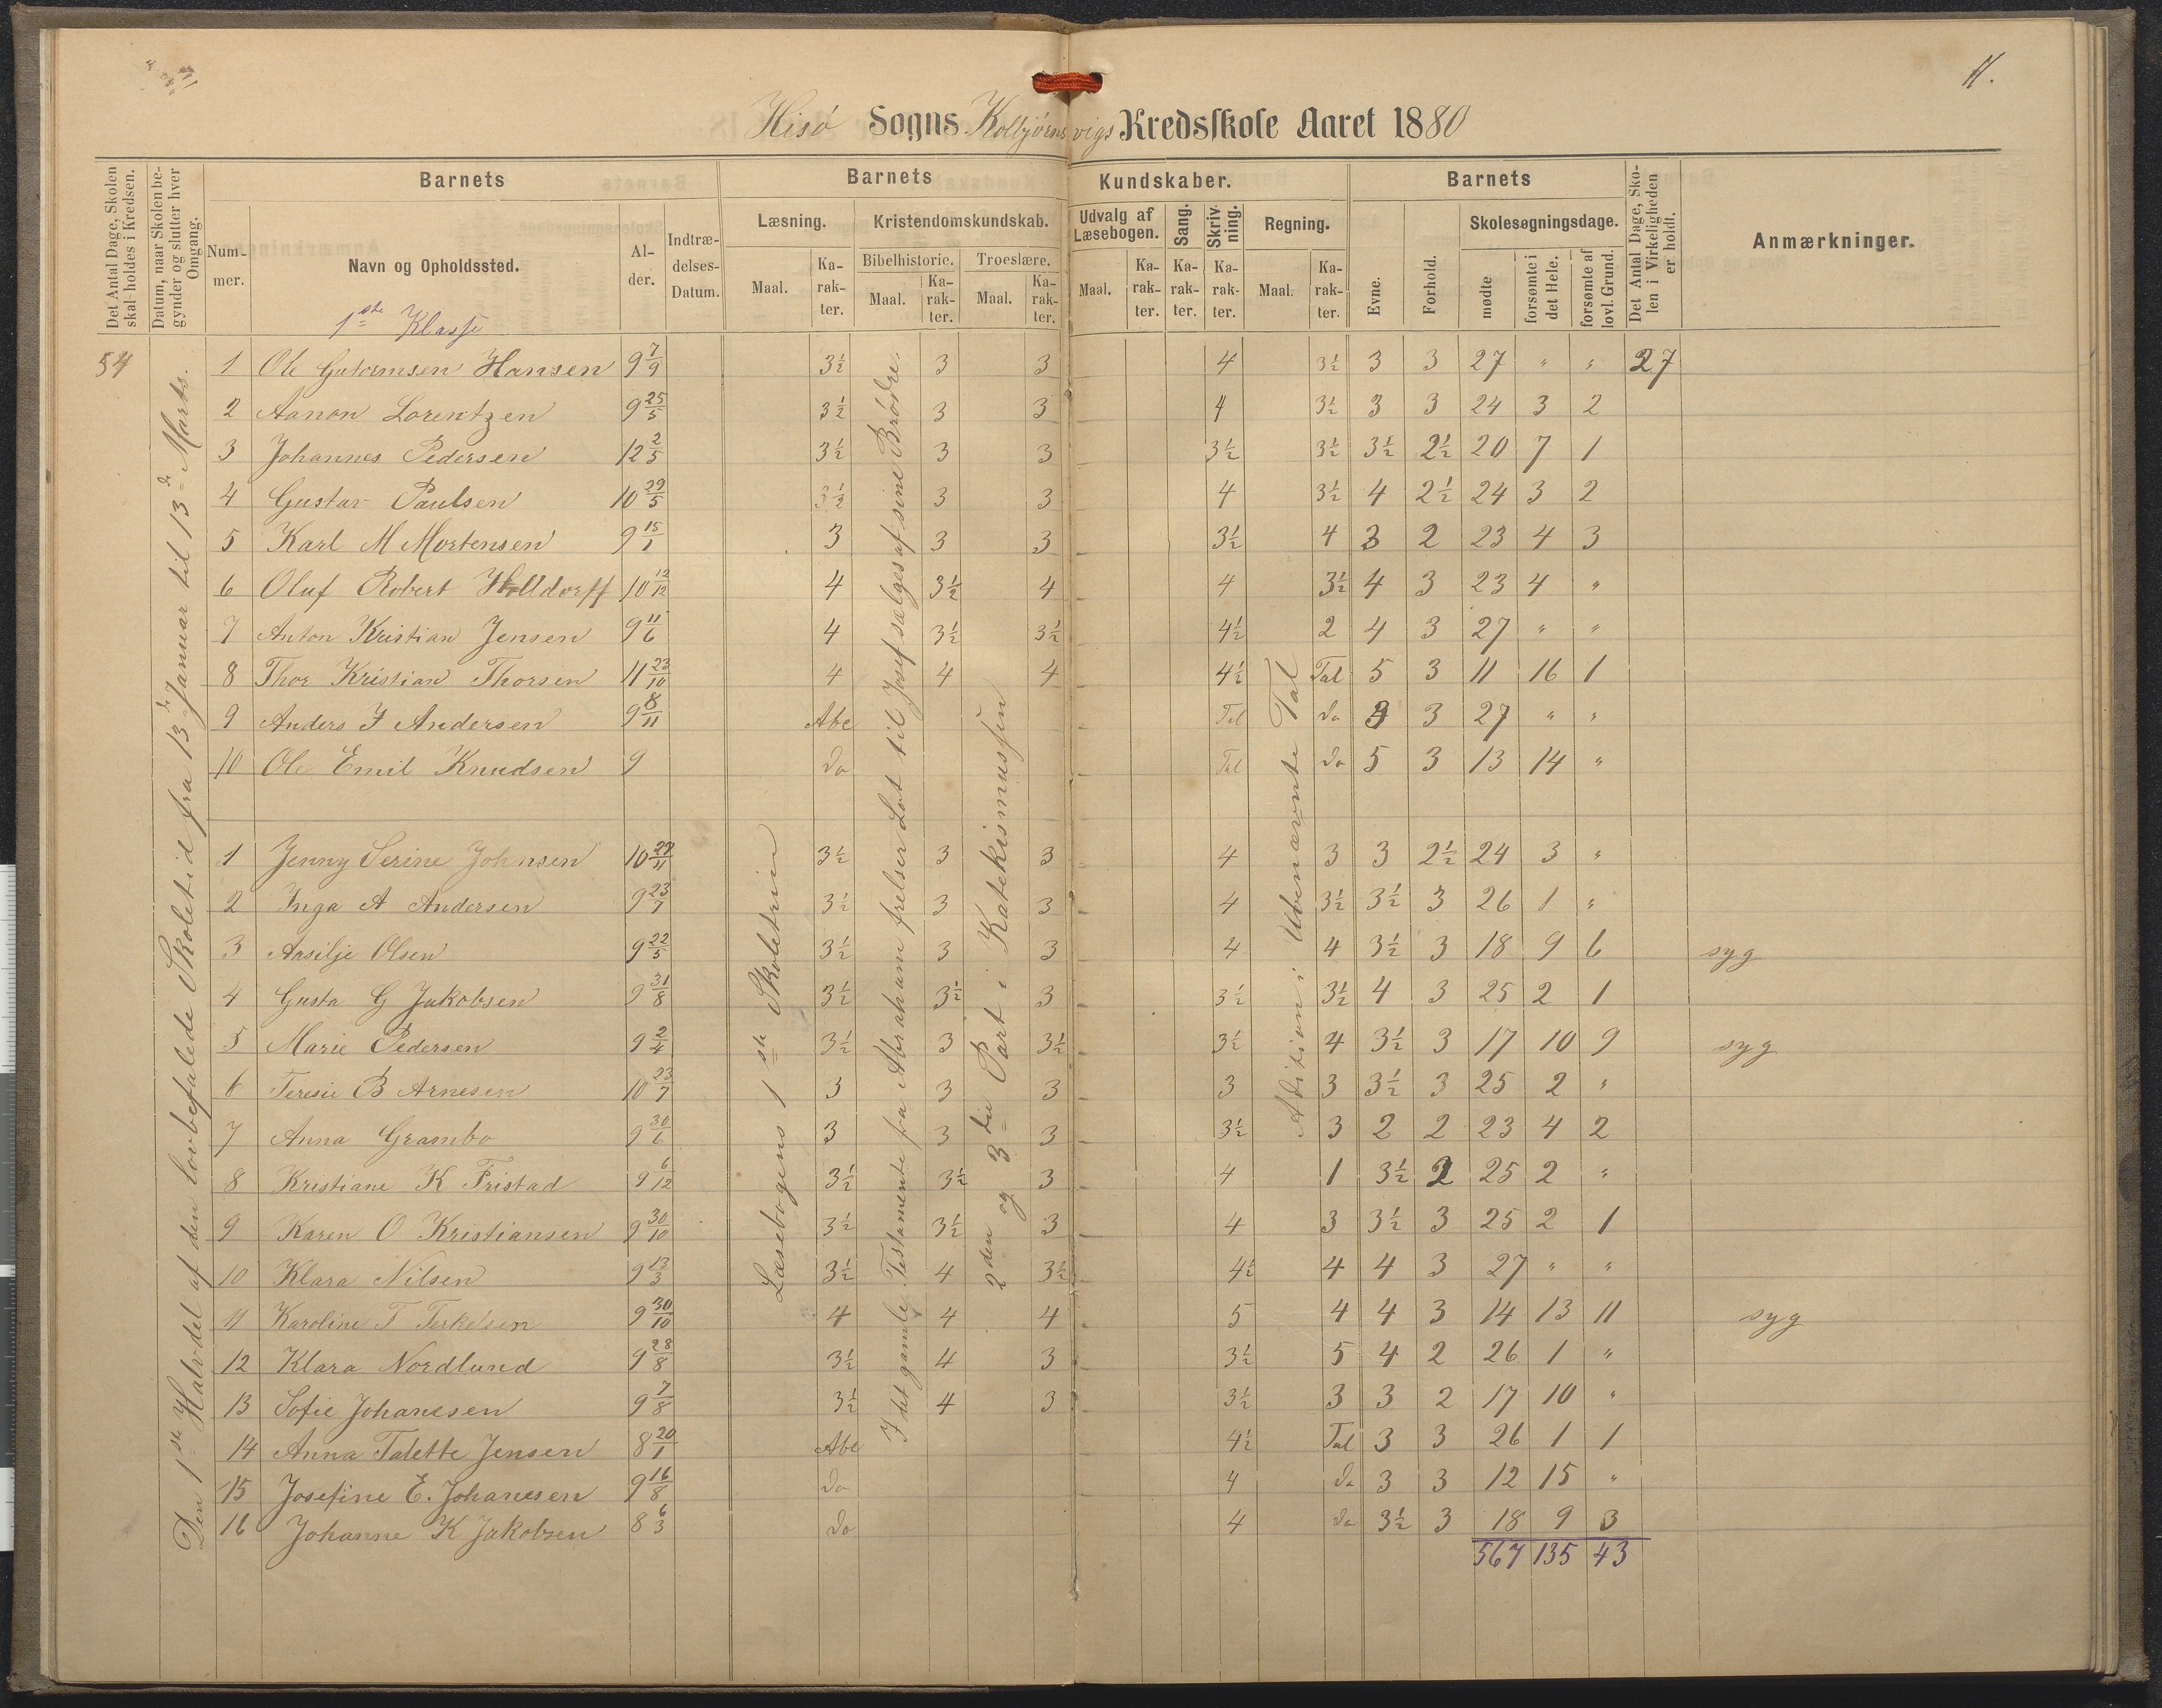 11.
Hisø Sogns Kolbjørnsvigs Kredsskole Aaret 1880
Det Antal Dage, Skolen skal holdes i Kredsen.
Datum, naar Skolen begynder og slutter hver Omgang.
Barnets
Barnets
Kundskaber.
Barnets
Det Antal Dage, Skolen i Virkeligheden er holdt.
Anmærkninger.
Nummer.
Navn og Opholdssted.
Alder.
Indtrædelses-Datum.
Læsning.
Kristendomskundskab.
Udvalg af Læsebogen.
Sang.
Skrivning.
Regning.
Evne.
Forhold.
Skolesøgningsdage.
Bibelhistorie.
Troeslære.
Maal.
Karakter.
Maal.
Karakter.
Maal.
Karakter.
Maal.
Karakter.
Karakter.
Karakter.
Maal.
Karakter.
mødte
forsømte i det Hele.
forsømte af lovl. Grund.
1ste Klasse
54
Den 1ste Halvdel af den lovbefalede Skoletid fra 13de Januar til 13de Marts.
Læsebogens 1ste Skoletrin
I det gamle Testamente fra Abraham frelser Lot til Josef sælges af sine Brødre.
2den og 3die Part i Katekismussen
Adition i Ubenævnte Tal
1 Ole Gutormsen Hansen 9 7/9 3½ 3 3 4 3½ 3 3 27 " " 27
2 Aanon Lorentzen 9 25/5 3½ 3 3 4 3½ 3 3 24 3 2
3 Johannes Pedersen 12 2/5 3½ 3 3 3½ 3½ 3½ 2½ 20 7 1
4 Gustav Paulsen 10 29/5 3½ 3 3 4 3½ 4 2½ 24 3 2
5 Karl M Mortensen 9 15/1 3 3 3 3½ 4 3 2 23 4 3
6 Oluf Robert Holldorff 10 12/12 4 3½ 4 4 3½ 4 3 23 4 "
7 Anton Kristian Jensen 9 11/6 4 3½ 3½ 4½ 2 4 3 27 " "
8 Thor Kristian Thorsen 11 23/10 4 4 4 4½ Tal 5 3 11 16 1
9 Anders J Andersen 9 8/11 Abc Tal do 3 27 " "
10 Ole Emil Knudsen 9 do Tal do 5 3 13 14 "
1 Jenny Serine Johnsen 10 27/11 3½ 3 3 4 3 3 2½ 24 3 "
2 Inga A Andersen 9 23/7 3½ 3 3 4 3½ 3½ 3 26 1 "
3 Aasilje Olsen 9 22/5 3½ 3 3 4 4 3½ 3 18 9 6 syg
4 Gusta G Jakobsen 9 31/8 3½ 3½ 3 3½ 3½ 4 3 25 2 1
5 Marie Pedersen 9 2/4 3½ 3 3½ 3½ 4 3½ 3 17 10 9 syg
6 Teresie B Arnesen 10 23/7 3 3 3 3 3 3½ 3 25 2 "
7 Anna Grambo 9 30/6 3 3 3 3½ 3 2 2 23 4 2
8 Kristiane K Fristad 9 6/12 3½ 3½ 3 4 1 3½ 2 25 2 "
9 Karen O Kristiansen 9 30/10 3½ 3½ 3 4 3 3½ 3 25 2 1
10 Klara Nilsen 9 13/3 3½ 4 3½ 4½ 4 4 3 27 " "
11 Karoline T Terkelsen 9 30/10 4 4 4 5 4 4 3 14 13 11 syg
12 Klara Nordlund 9 28/8 3½ 4 3 3½ 5 4 2 26 1 "
13 Sofie Johanesen 9 7/8 3½ 4 3 3½ 3 3 2 17 10 "
14 Anna Talette Jensen 8 20/1 Abc 4½ Tal 3 3 26 1 1
15 Josefine E. Johanesen 9 16/8 do 4 do 3 3 12 15 "
16 Johanne K Jakobsen 8 6/3 do 4 do 3½ 3 18 9 3
567 135 43